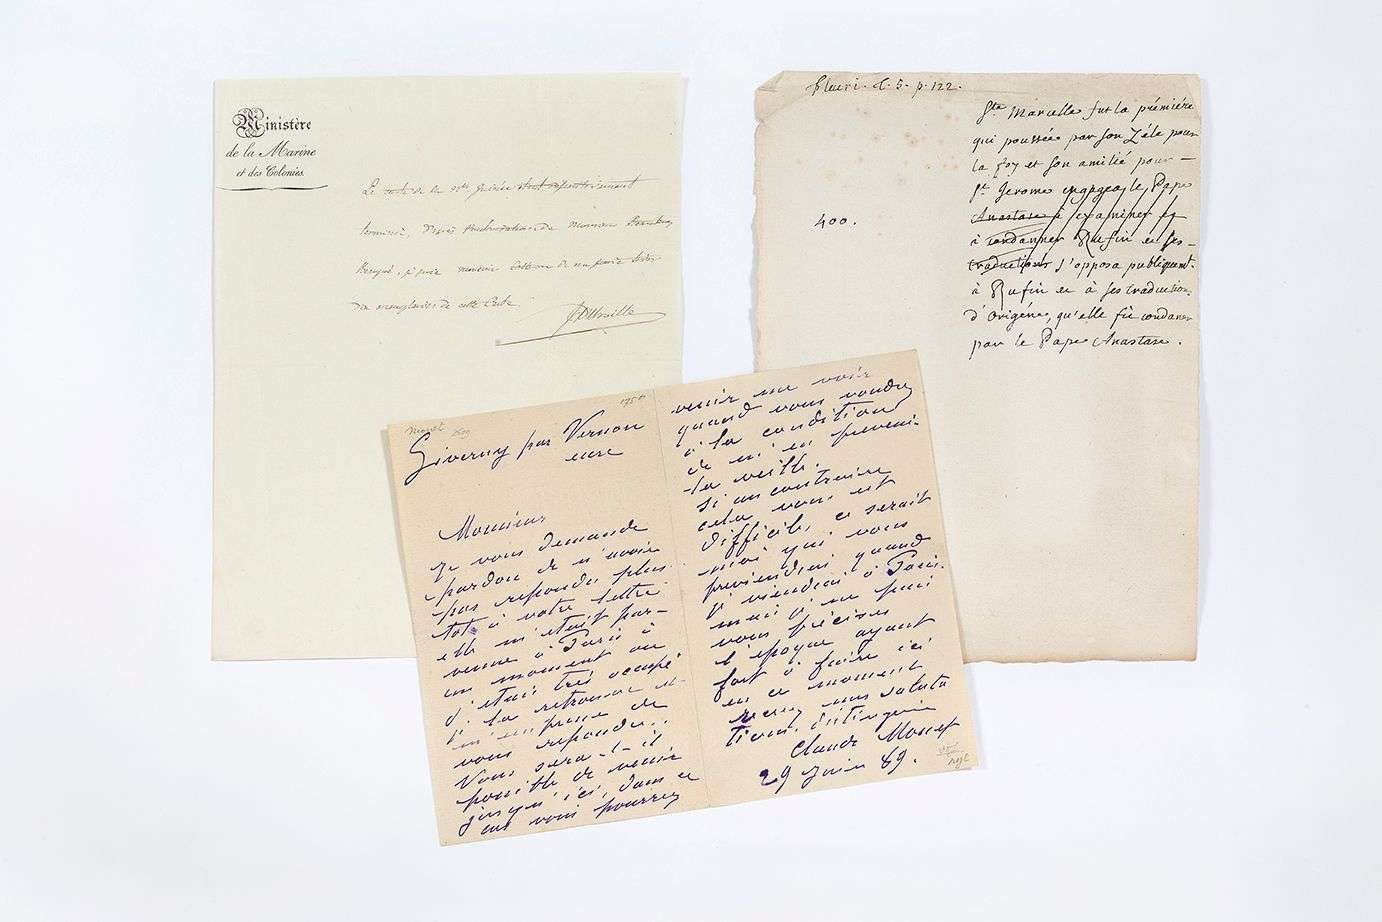 Ministère
de la Marine
et des Colonies
Le de la Guinée
terminée, d'après de Monsieur
de
dix exemplaires de cette Carte
D'Urville
fleuri. t. 5. p. 122.
400.
Ste Marcelle fut la prémiére
qui poussée par son Zéle pour
la foy et son amitié pour –
St. Jerome engagea le Pape
Anastase à examiner et
à condanner Rufin et ses
traductions s'opposa publiquemt.
à Rufin et à ses traduction.
d'Origéne, qu'elle fit condaner
par le Pape Anastase.
Monet
1754
Giverny par Vernon
eure
Monsieur
Je vous demande
pardon de n'avoir
pas repondu plus
tot à votre lettre
elle m'etait par-
venue à Paris à
un moment ou
j'etais très occupé
je la retrouve et
m'empresse de
vous repondre.
Vous sera-t-il
possible de venir
jusqu'ici, dans ce
cas vous pourrez
venir me voir
quand vous voudrez
à la condition
de m'en preveni-
la veille.
Si au contraire
cela vous est
difficile, ce serait
moi qui vous
previendrai quand
je viendrai à Paris.
mais je ne puis
vous préciser
l'époque ayant
fort à faire ici
en ce moment
recevez mes saluta
tions distinguées
Claude Monet
29 Juin 89.